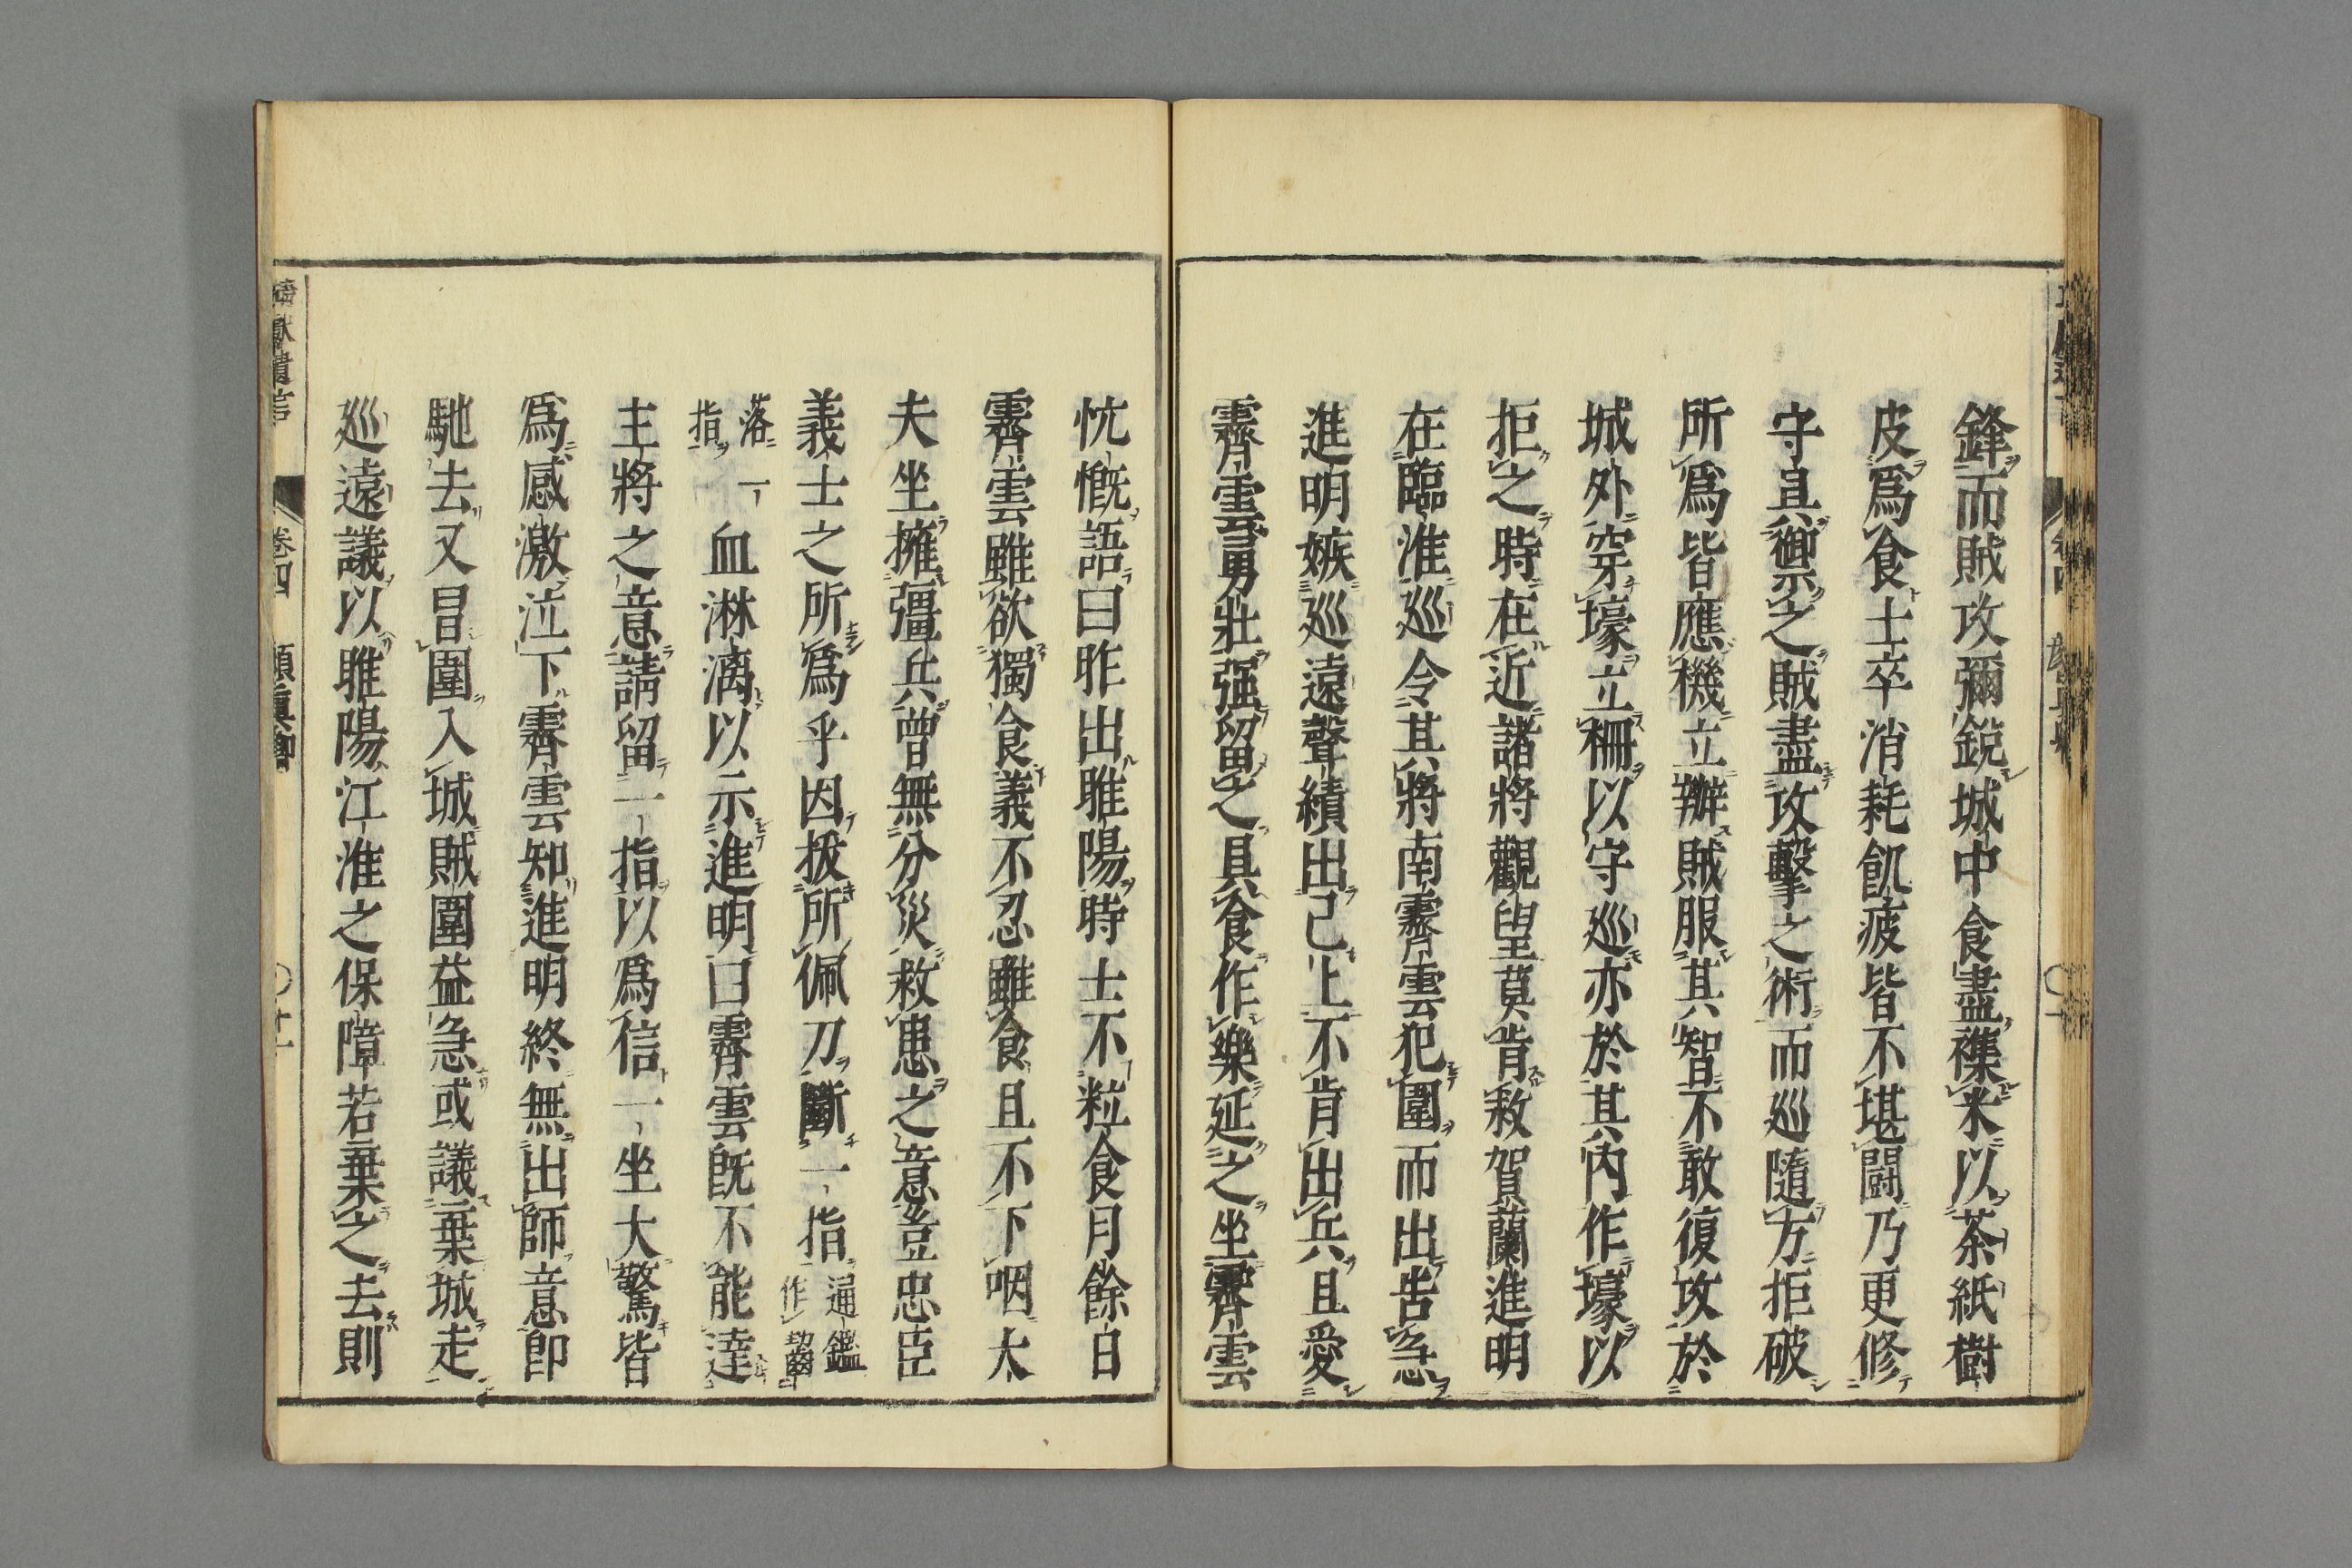 鋒而賊攻彌鋭城中食盡襍米以茶紙樹
皮爲食士卒消耗飢疲皆不堪闘乃更修
守具禦之賊盡攻擊之術而巡隨方拒破
所爲皆應機立辦賊服其智不敢復攻於
城外穿壕立柵以守巡亦於其內作壕以
拒之時在近諸將觀望莫肯救賀蘭進明
在臨淮巡令其將南霽雲犯圍而出告急
進明嫉巡遠聲績出己上不肯出兵且愛
霽雲勇壯强留之具食作樂延之坐霽雲
忼慨語曰昨出睢陽時士不粒食月餘白
霽雲雖欲獨食義不忍雖食且不下咽大
夫坐擁彊兵曾無分災救患之意豈忠臣
義士之所爲乎因拔所佩刀斷一指通鑑作齧
落一指血淋漓以示進明曰霽雲既不能達
主將之意請留一指以爲信一坐大驚皆
爲感激泣下霽雲知進明終無出師意即
馳去又冒圍入城賊圍益急或議棄城走
巡遠議以睢陽江淮之保障若棄之去則
獻遺言 卷四 顏眞卿 〇十一